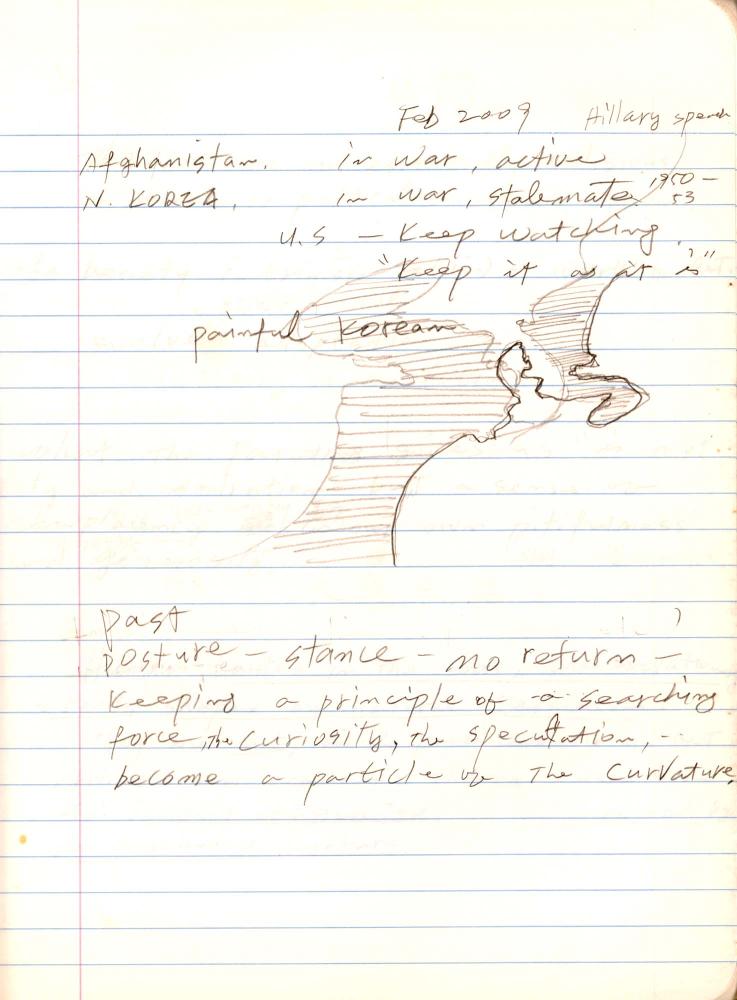 Feb 2009 Hillary speech
Afghanistan. in war, active
N. KOREA, in war, stalemate 1950 - 53
U.S - Keep watching.
"Keep it as it is"
painful Korean
past
posture - stance - no return -
Keeping a principle of a searching
force, the curiosity, the speculation, -
become a particle of the curvature.